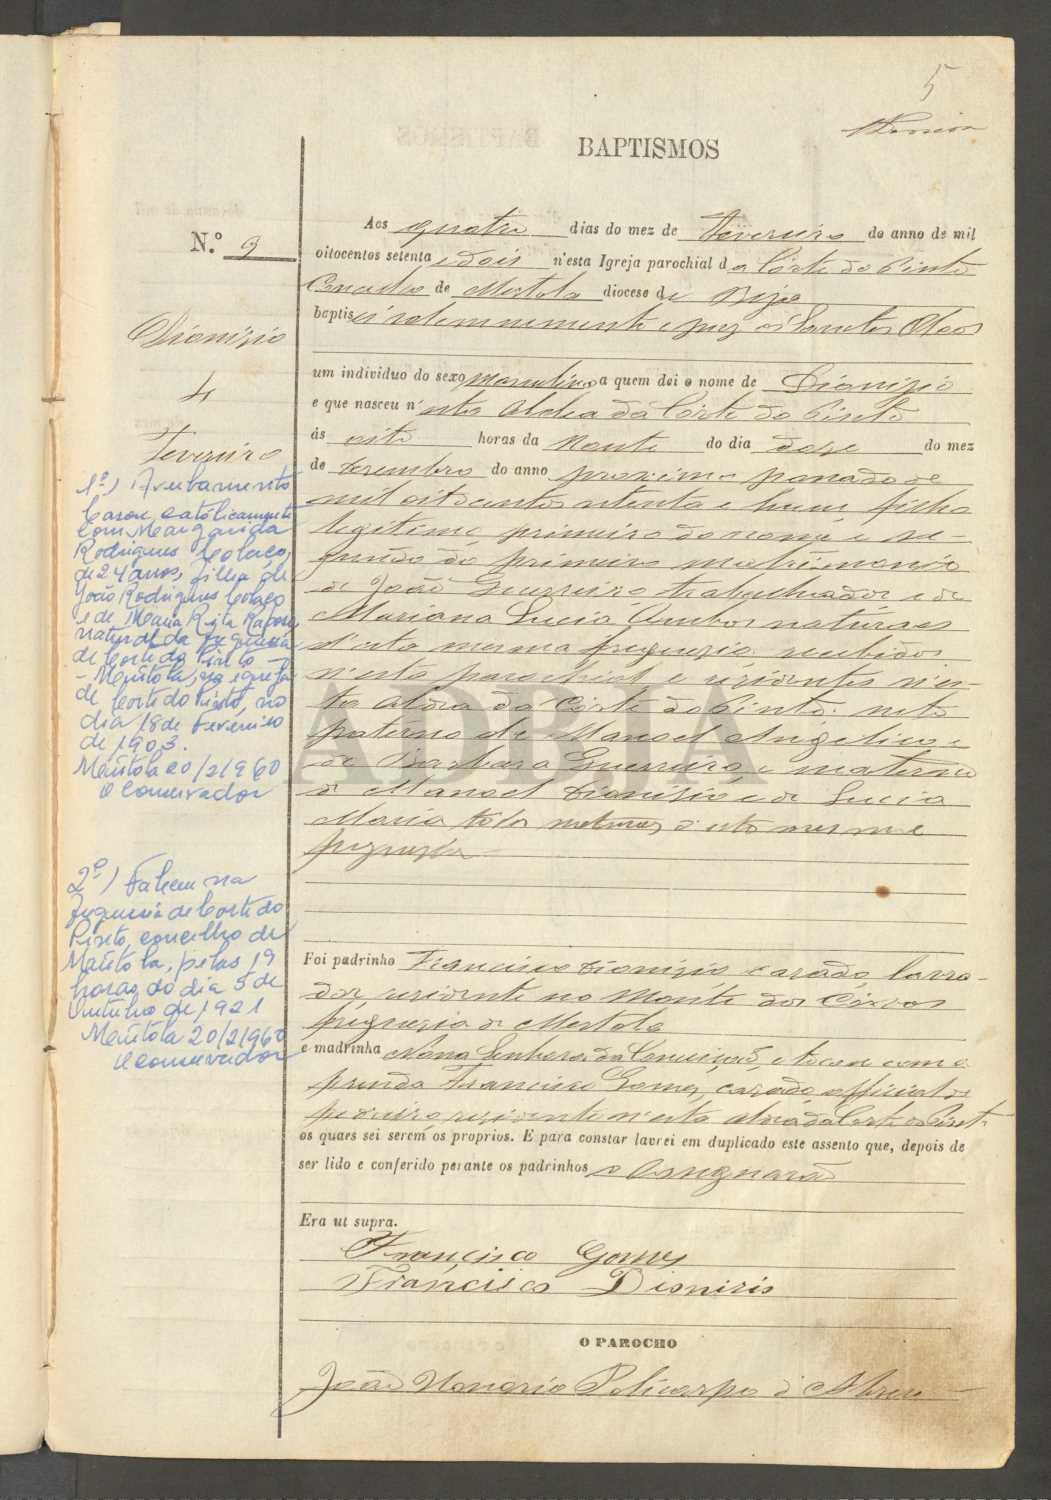 5
BAPTISMOS
N.º 9
Dionizio
4
Fevereiro
Aos quatro dias do mez de Fevereiro do anno de mil
oitocentos setenta e dois n'esta Igreja parochial da Côrte do Pinto
Concelho de Mertola diocese de Beja
baptisei solemnemente e puz os Santos Oleos
um individuo do sexo masculino a quem dei o nome de Dionizio
e que nasceu n'esta Aldea da Côrte do Pinto
ás oito horas da Noute do dia doze do mez
de Dezembro do anno proximo passado de
mil oitocentos setenta e hum filho
legitimo primeiro do nome e se-
gundo do primeiro matrimonio
de João Guerreiro trabalhador e de
Mariana Lucia Ambos naturaes
d'esta mesma freguezia recebidos
n'esta parochial e rezidentes n'es-
ta Aldea da Côrte do Pinto: neto
paterno de Manoel Angelico e
de Barbara Guerreiro e materno
de Manoel Dionizio e de Lucia
Maria todos naturaes d'esta mesma
freguezia
Foi padrinho Francisco Dionizio, casado, lavra-
dor, rezidente no Monte dos Corvos
freguezia de Mertola
e madrinha Nossa Senhora da Conceição, e tocou com a
prenda Francisco Gomes, casado official de
pedreiro rezidente n'esta aldea da Corte do Pinto
os quaes sei serem os proprios. E para constar lavrei em duplicado este assento que, depois de
ser lido e conferido perante os padrinhos o assignarão
Era ut supra.
Francisco Gomes
Francisco Dionizio
O PAROCHO
João Honorio Policarpo d'Abreu
1º) Averbamento
Casou catòlicamente
com Margarida
Rodrigues Colaço,
de 24 anos, filha de
João Rodrigues Colaço
e de Maria Rita
natural da freguesia
de Corte do Pinto —
- Mértola, na igreja
de Corte do Pinto, no
dia 18 de Fevereiro
de 1903.
Mértola 20/2/960
O Conservador
2º) Faleceu na
freguesia de Corte do
Pinto, concelho de
Mértola, pelas 19
horas do dia 5 de
Outubro de 1921
Mértola 20/2/960
O Conservador
ADBJA